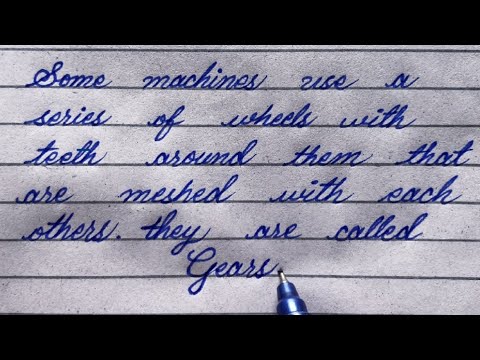 Some machines use a
series of wheels with
teeth around them that
are meshed with each
others. they are called
Gears.